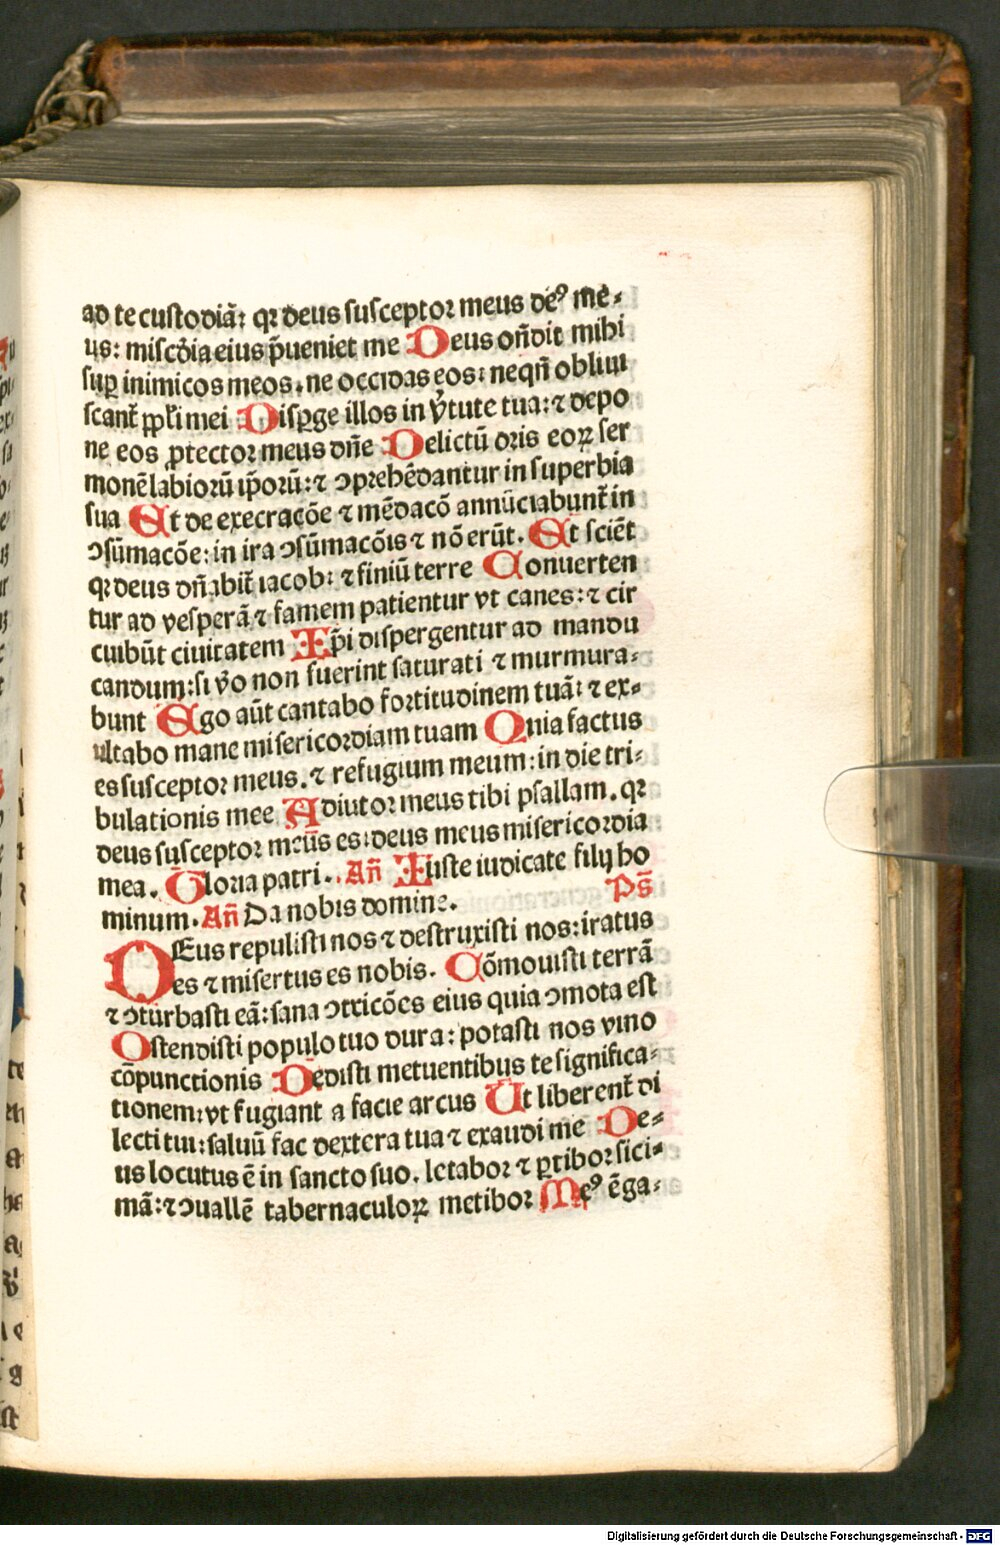 ad te custodiā: qꝛ deus susceptor meus de⁹ me-
us: misc̄dia eius p̄ueniet me Deus on̄dit mihi
suꝑ inimicos meos. ne occidas eos: neqn̄ obliui
scant̄ pp̄li mei Disꝑge illos in v̄tute tua: ⁊ depo
ne eos ꝓtector meus dn̄e Delictū oris eoꝝ ser
monē labiorū ip̄orū: ⁊ ↄprehēdantur in superbia
sua Et de execracōe ⁊ mēdacō annūciabunt̄ in
ↄsūmacōe: in ira ↄsūmacōis ⁊ nō erūt. Et sciēt
qꝛ deus dn̄abit̄ iacob: ⁊ finiū terre Conuerten
tur ad vesperā ⁊ famem patientur vt canes: ⁊ cir
cuibūt ciuitatem Ip̄i dispergentur ad mandu
candum: si v̄o non fuerint saturati ⁊ murmura-
bunt Ego aūt cantabo fortitudinem tuā: ⁊ ex-
ultabo mane misericordiam tuam Quia factus
es susceptor meus. ⁊ refugium meum: in die tri-
bulationis mee Adiutor meus tibi psallam. qꝛ
deus susceptor meus es: deus meus misericordia
mea. Gloria patri.. An̄ Iuste iudicate filij ho
minum. An̄ Da nobis domine. Ps̄
DEus repulisti nos ⁊ destruxisti nos: iratus
es ⁊ misertus es nobis. Cōmouisti terrā
⁊ ↄturbasti eā: sana ↄtricōes eius quia ↄmota est
Ostendisti populo tuo dura: potasti nos vino
cōpunctionis Dedisti metuentibus te significa-
tionem: vt fugiant a facie arcus Ut liberent̄ di
lecti tui: saluū fac dextera tua ⁊ exaudi me De-
us locutus ē in sancto suo. letabor ⁊ ꝑtibor sici-
mā: ⁊ ↄuallē tabernaculoꝝ metibor Me⁹ ē ga-
Digitalisierung gefördert durch die Deutsche Forschungsgemeinschaft - DFG